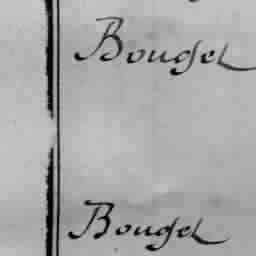 Bouget
Bouget